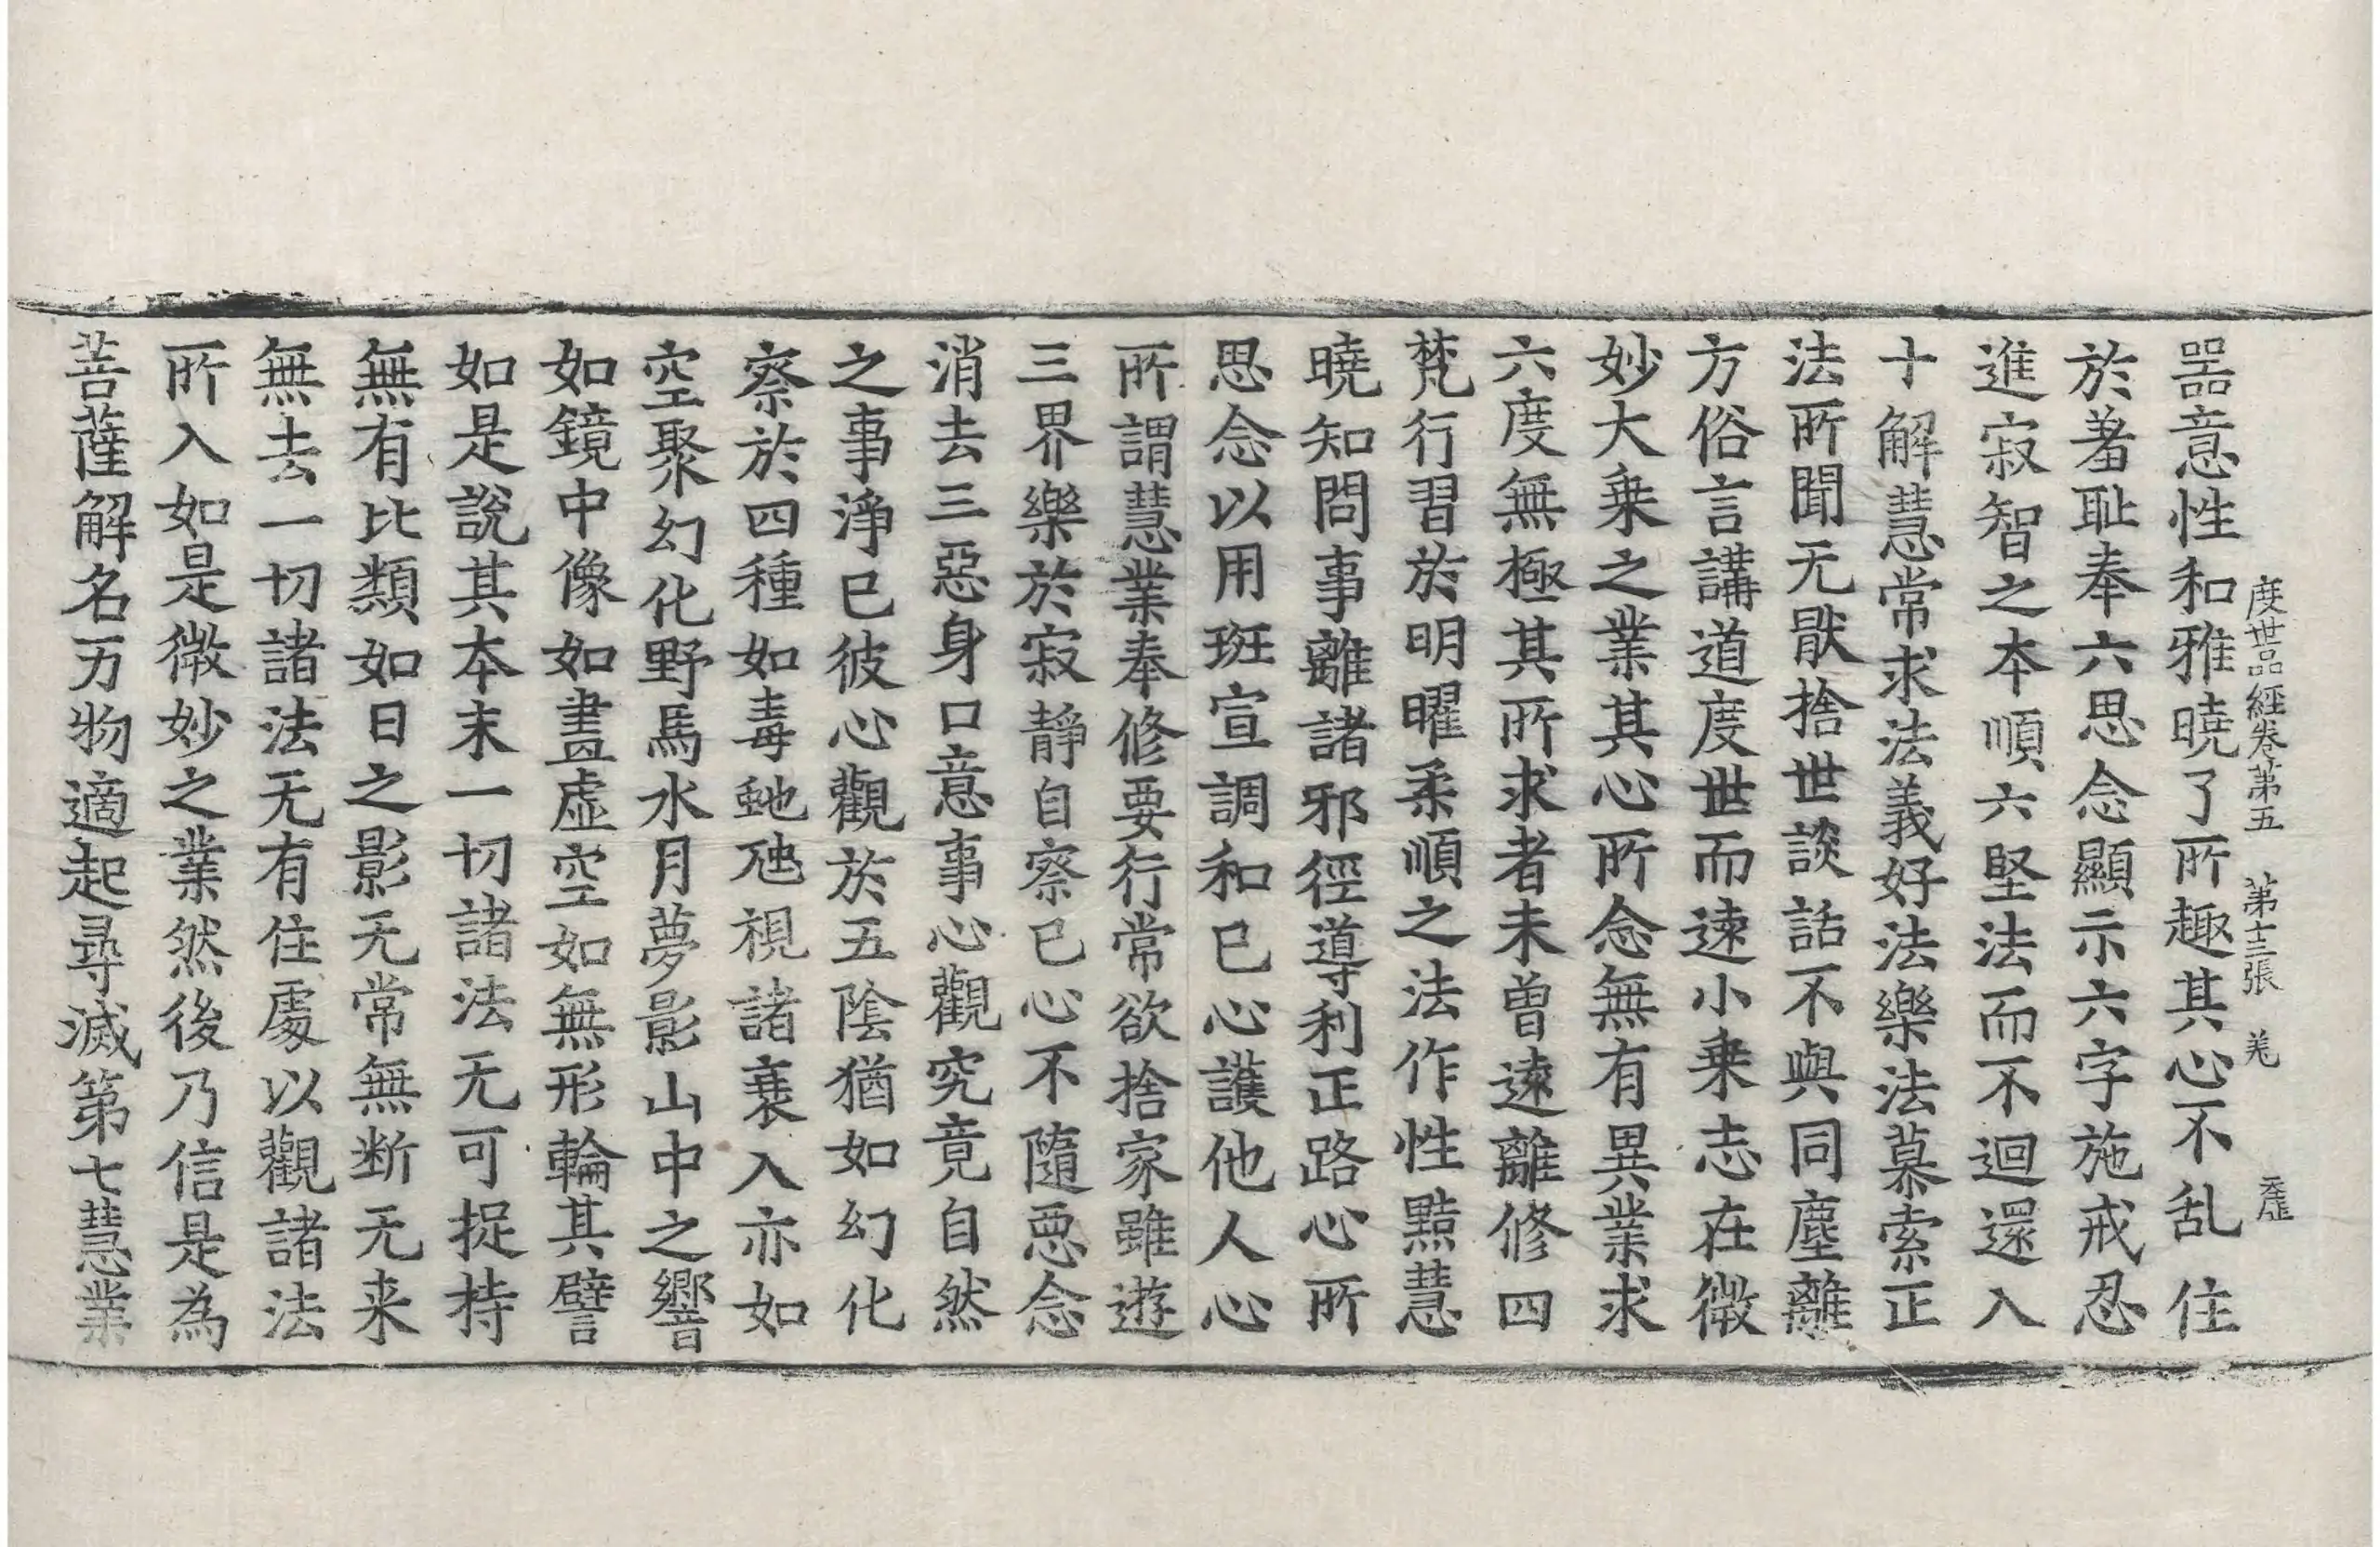 度世品經卷第五 第十三張 羗
噐意性和雅曉了所趣其心不乱住
於羞耻奉六思念顯示六字施戒忍
進寂智之本順六堅法而不迴還入
十解慧常求法義好法樂法慕索正
法所聞无猒捨世談話不與同塵離
方俗言講道度世而逺小乗志在微
妙大乗之業其心所念無有異業求
六度無極其所求者未曽逺離修四
梵行習於明曜柔順之法作性黠慧
曉知問事離諸邪徑導利正路心所
思念以用班宣調和已心護他人心
所謂慧業奉修要行常欲捨家雖遊
三界樂於寂靜自察已心不隨惡念
消去三惡身口意事心觀究竟自然
之事淨已彼心觀於五陰猶如幻化
察於四種如毒虵虺視諸衰入亦如
空聚幻化野馬水月夢影山中之響
如鏡中像如畫虛空如無形輪其譬
如是說其本末一切諸法无可捉持
無有比類如日之影无常無断无来
無去一切諸法无有住處以觀諸法
所入如是微妙之業然後乃信是為
菩薩解名万物適起尋滅第七慧業